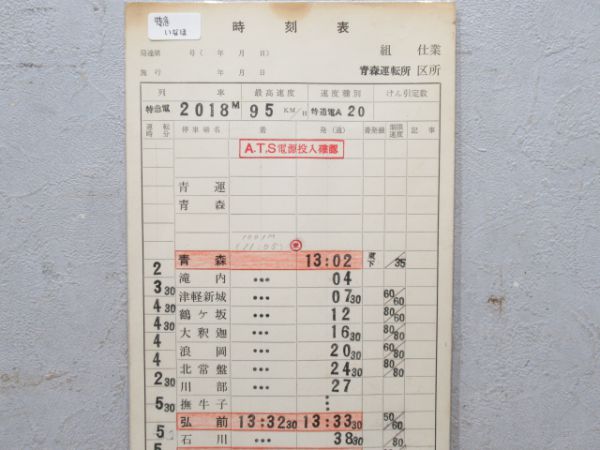 特急
いなほ
時刻表
組 仕業
局達第 号( 年 月 日)
施行 年 月 日 青森運転所 区所
列 車 最高速度 速度種別 けん引定数
特急電 2018M 95 KM/H 特通電A20
運転 時分 停車場名 着 発(通) 着発線 制限速度 記事
A.T.S電源投入確認
青 運
青 森
1001M
(11:05)
青 森 13:02 35
2
滝 内 ••• 04
3 30
津軽新城 ••• 07 30 60/60
4 30
鶴ケ坂 ••• 12 80/60
4 30
大釈迦 ••• 16 30 80/80
4
浪 岡 ••• 20 30 60/80
4
北常盤 ••• 24 30 80/80
2 30
川 部 ••• 27
撫牛子
5 30
弘 前 13:32 30 13:33 30 50/60
5
石 川 ••• 38 30 80